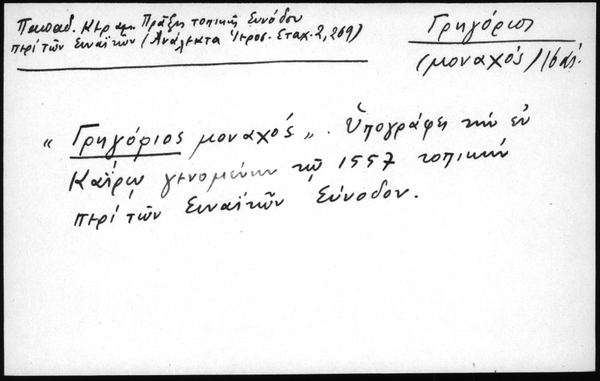 Παπαδ. Κεραμ. Πρᾶξις τοπικῆς Συνόδου
περὶ τῶν Σιναϊτῶν (Ἀνάλεκτα Ἱεροσ. Σταχ. 2, 269)
Γρηγόριος
(μοναχός) 16 αἰ.
« Γρηγόριος μοναχός ». Ὑπογράφει τὴν ἐν
Καΐρῳ γενομένην τῷ 1557 τοπικὴν
περὶ τῶν Σιναϊτῶν Σύνοδον.